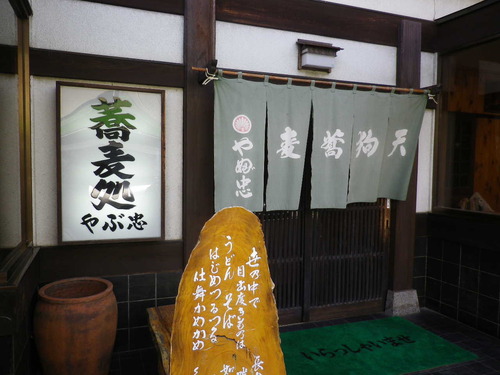 蕎麦処
やぶ忠
天狗蕎麦
やぶ忠
世の中で
目出度きものは
うどん そば
はじめつるつる
仕舞かめかめ
いらっしゃいませ